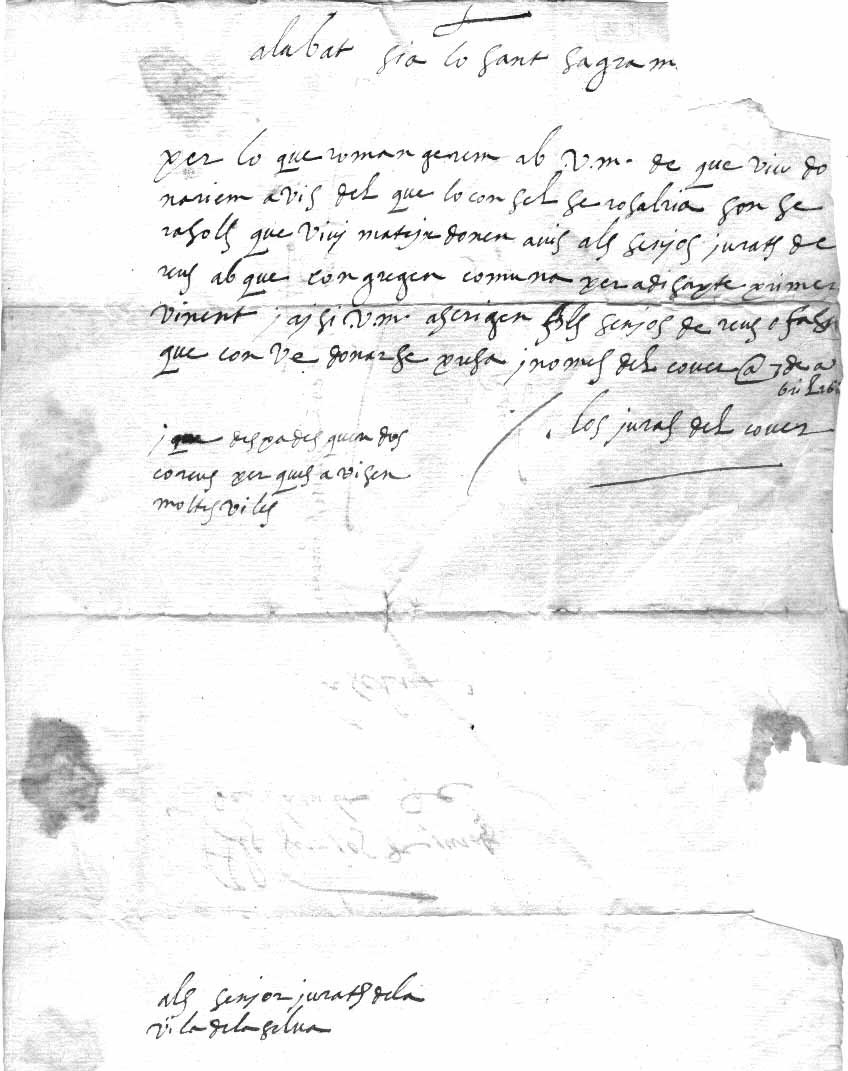 alabat sia lo sant sagram
per lo que romangerem ab v.m. de que viu do
nariem avis del que lo consel se rosalria son se
rasolts que vuy matex donen avis als senjos jurats de
reus ab que congregen comuna per a disapte primer
vinent j ajsi v.m. ascrigen als senjos de reus o fasa
que conve donarse presa j nomes del cover @ 7 de a
bril 16
los juras del cover
j que despades quen dos
coreus per ques avisen
moltes viles
als senjor jurats de la
vila de la selva